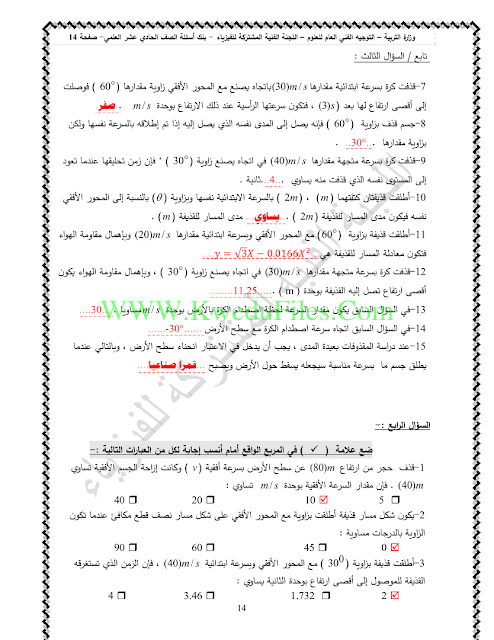 وزارة التربية – التوجيه الفني العام للعلوم – اللجنة الفنية المشتركة للفيزياء - بنك أسئلة الصف الحادي عشر العلمي- صفحة 14
تابع / السؤال الثالث :
7–قذفت كرة بسرعة ابتدائية مقدارها (30)m/s باتجاه يصنع مع المحور الأفقي زاوية مقدارها (60°) فوصلت
إلى أقصى ارتفاع لها بعد (3)s ، فتكون سرعتها الرأسية عند ذلك الارتفاع بوحدة m/s ..صفر..
8–جسم قذف بزاوية (60°) فإنه يصل إلى المدى نفسه الذي يصل إليه إذا تم إطلاقه بالسرعة نفسها ولكن
بزاوية مقدارها ..30°..
9–قذفت كرة بسرعة متجهة مقدارها (40)m/s في اتجاه يصنع زاوية (30°) ؛ فإن زمن تحليقها عندما تعود
إلى المستوى نفسه الذي قذفت منه يساوي ..4..ثانية .
10–أطلقت قذيفتان كتلتهما (m) ، (2m) بالسرعة الابتدائية نفسها وبزاوية (θ) بالنسبة إلى المحور الأفقي
نفسه فيكون مدى المسار للقذيفة (2m) ..يساوي.. مدى المسار للقذيفة (m) .
11–أطلقت قذيفة بزاوية (60°) مع المحور الأفقي وبسرعة ابتدائية مقدارها (20)m/s وبإهمال مقاومة الهواء
فتكون معادلة المسار للقذيفة هي ..y = √3X – 0.0166X²..
12–قذفت كرة بسرعة متجهة مقدارها (30)m/s في اتجاه يصنع زاوية (30°) ، وبإهمال مقاومة الهواء يكون
أقصى ارتفاع تصل إليه القذيفة بوحدة (m) ......11.25.......
13–في السؤال السابق يكون مقدار السرعة لحظة اصطدام الكرة بالأرض بوحدة m/s مساويا ...30...
14–في السؤال السابق اتجاه سرعة اصطدام الكرة مع سطح الأرض ......30°-.....
15–عند دراسة المقذوفات بعيدة المدى ، يجب أن يدخل في الاعتبار انحناء سطح الأرض ، وبالتالي عندما
يطلق جسم ما بسرعة مناسبة سيجعله يسقط حول الأرض ويصبح ...قمرا صناعيا....
www.KweduFiles.Com
اللجنة الفنية المشتركة للفيزياء
السؤال الرابع :-
ضع علامة ( ✓ ) في المربع الواقع أمام أنسب إجابة لكل من العبارات التالية :-
1–قذف حجر من ارتفاع (80)m عن سطح الأرض بسرعة أفقية (v) وكانت إزاحة الجسم الأفقية تساوي
(40)m . فإن مقدار السرعة الأفقية بوحدة m/s تساوي :
☐ 5 ☑ 10 ☐ 20 ☐ 40
2–يكون شكل مسار قذيفة أطلقت بزاوية مع المحور الأفقي على شكل مسار نصف قطع مكافئ عندما تكون
الزاوية بالدرجات مساوية :
☑ 0 ☐ 45 ☐ 60 ☐ 90
3–أطلقت قذيفة بزاوية (30⁰) مع المحور الأفقي وبسرعة ابتدائية (40)m/s ، فإن الزمن الذي تستغرقه
القذيفة للوصول إلى أقصى ارتفاع بوحدة الثانية يساوي :
☑ 2 ☐ 1.732 ☐ 3.46 ☐ 4
14